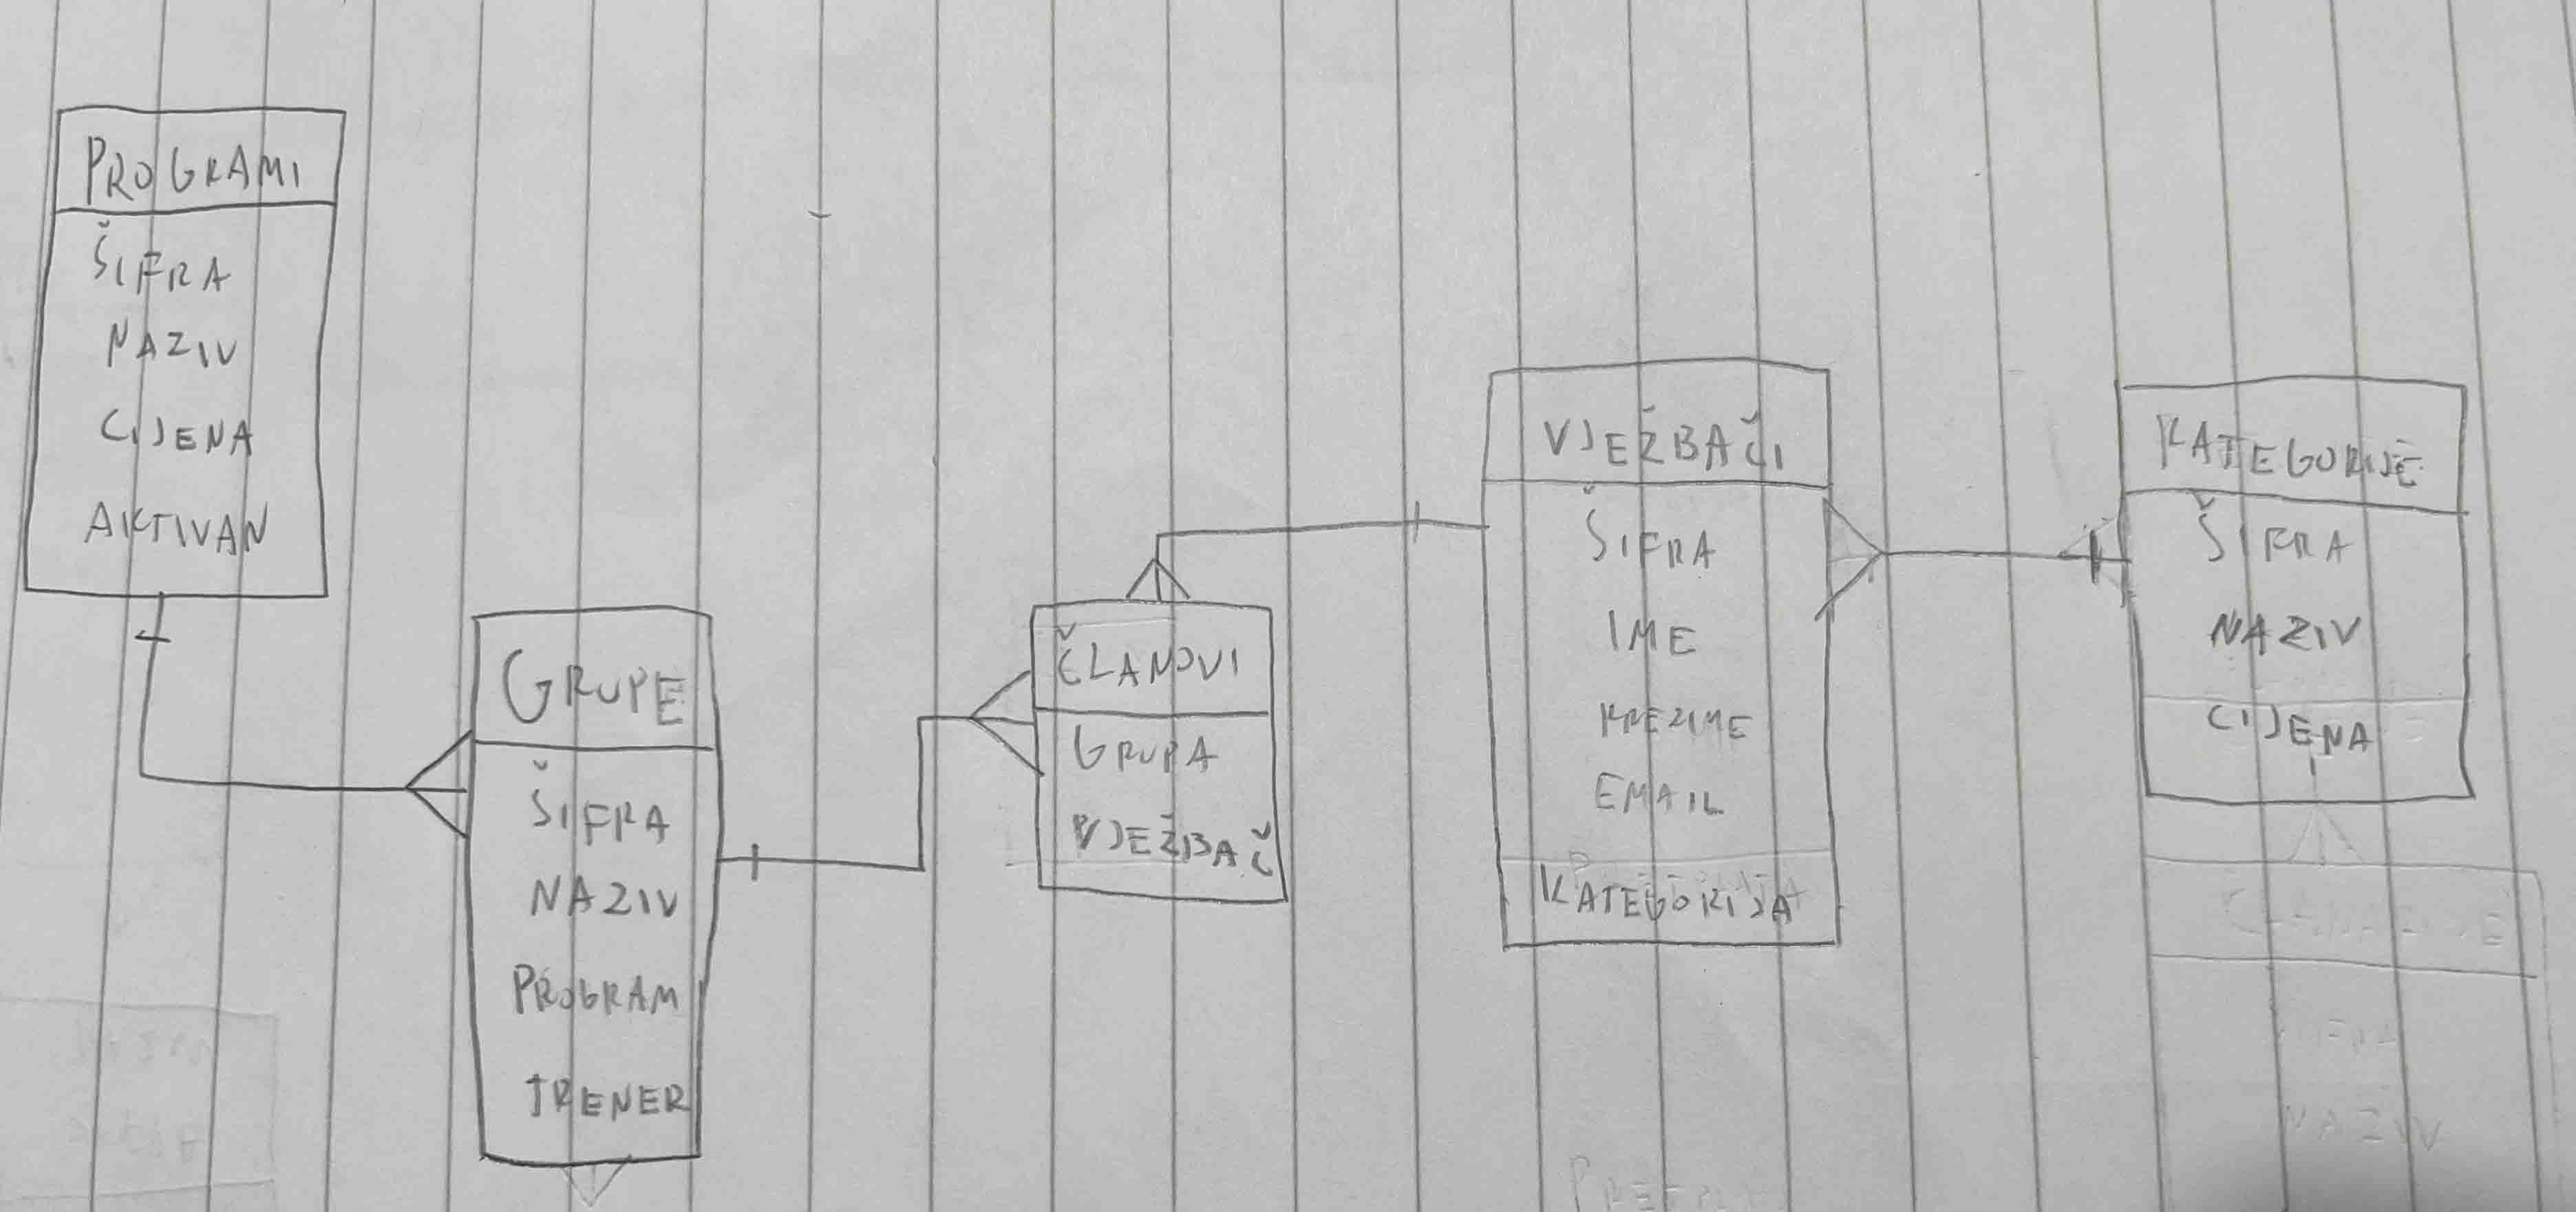 PROGRAMI
ŠIFRA
NAZIV
CIJENA
AKTIVAN
GRUPE
ŠIFRA
NAZIV
PROGRAM
TRENER
ČLANOVI
GRUPA
VJEŽBAČ
VJEŽBAČI
ŠIFRA
IME
PREZIME
EMAIL
KATEGORIJA
KATEGORIJE
ŠIFRA
NAZIV
CIJENA
NAZIV